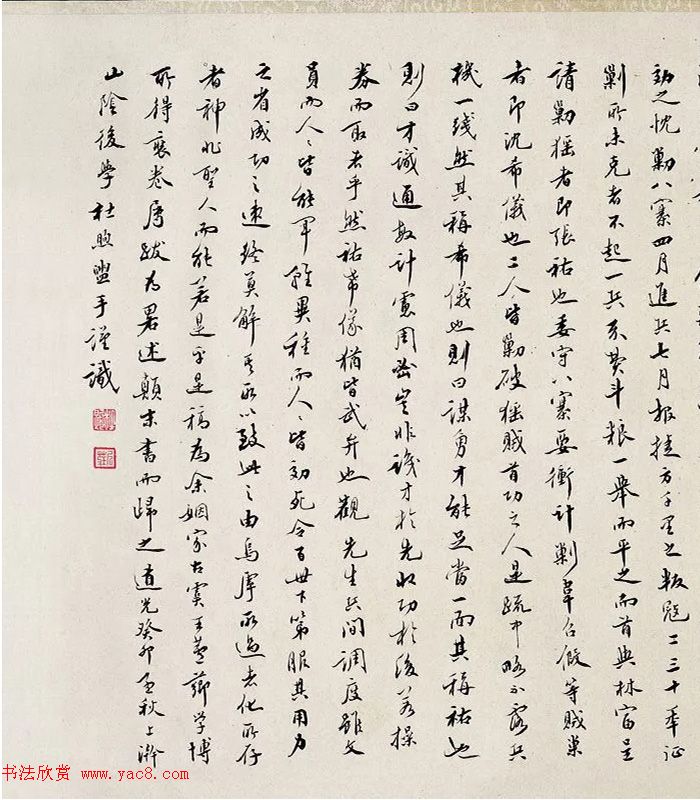 効之忱勦八寨四月進兵七月報捷方千里之叛寇二三十年征
剿所未克者不起一兵不費斗粮一舉而平之而首與林富呈
請勦猺者即張祐也委守八寨要衝計剿韋召假等賊巢
者即沈希儀也二人皆勦破猺賊首功之人是疏中略不露兵
機一綫然其稱希儀也則曰謀勇才能足當一面其稱祐也
則曰才識通敏計慮周密豈非識才於先收功於後若操
券而取者乎然祐希儀猶皆武弁也觀先生兵間調度雖文
員而人〻皆能軍雖異種而人〻皆効死令百世下第服其用力
之省成功之速終莫解其所以致此之由烏虖所過者化所存
者神非聖人而能若是乎是稿為余姻家古虞王鄉学博
所得裝卷屬跋為畧述顛末書而歸之道光癸卯孟秋上澣
山陰後學杜煦盥手謹識
书法欣赏 www.yac8.com